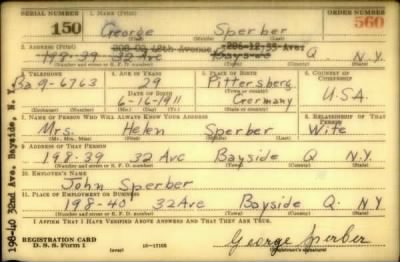 SERIAL NUMBER
1. NAME (Print)
ORDER NUMBER
150
George Sperber
560
2. ADDRESS (Print)
198-39 32 Ave Bayside Q. N.Y.
(Number and street or R. F. D. number) (Town) (County) (State)
3. TELEPHONE
4. AGE IN YEARS
5. PLACE OF BIRTH
6. COUNTRY OF CITIZENSHIP
Ba 9-6763
29
Pittersberg
DATE OF BIRTH
(Town or county)
6-16-1911
Germany
U.S.A.
(Exchange) (Number)
(Mo.) (Day) (Yr.)
(State or country)
7. NAME OF PERSON WHO WILL ALWAYS KNOW YOUR ADDRESS
8. RELATIONSHIP OF THAT PERSON
Mrs. Helen Sperber Wife
(Mr., Mrs., Miss) (First) (Middle) (Last)
9. ADDRESS OF THAT PERSON
198-39 32 Ave Bayside Q N.Y.
(Number and street or R. F. D. number) (Town) (County) (State)
10. EMPLOYER'S NAME
John Sperber
11. PLACE OF EMPLOYMENT OR BUSINESS
198-40 32 Ave Bayside Q. N.Y.
(Number and street or R. F. D. number) (Town) (County) (State)
I AFFIRM THAT I HAVE VERIFIED ABOVE ANSWERS AND THAT THEY ARE TRUE.
REGISTRATION CARD
D. S. S. Form 1
(over)
George Sperber
(Registrant's signature)
198-40 32nd Ave. Bayside, N. Y.